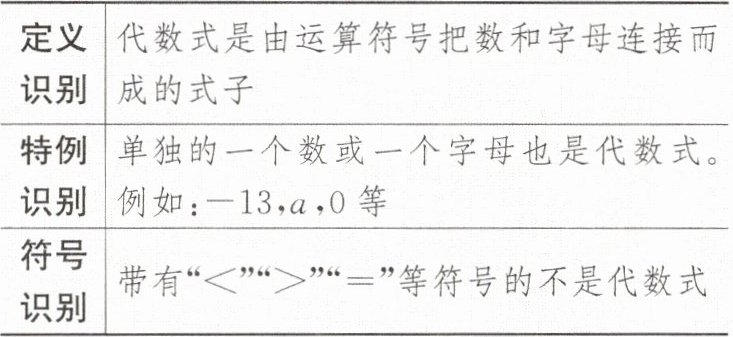 定义
识别
代数式是由运算符号把数和字母连接而
成的式子
特例
识别
单独的一个数或一个字母也是代数式。
例如:-13,a,0 等
符号
识别
带有“<”“>”“=”等符号的不是代数式